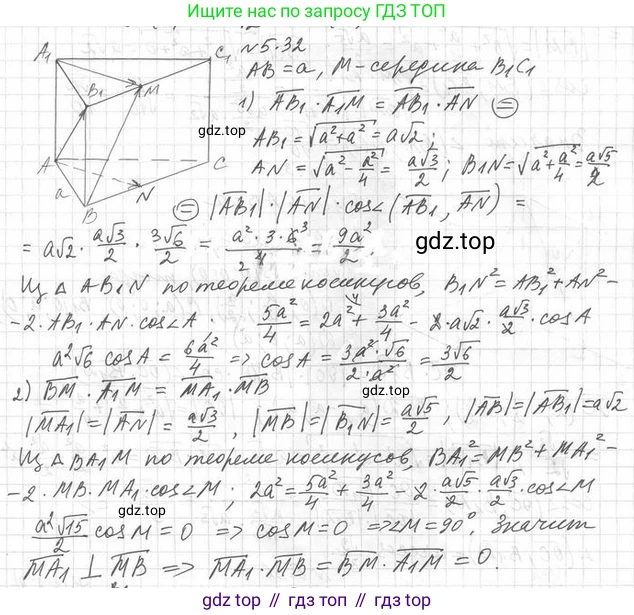 Ищите нас по запросу ГДЗ ТОП
N 5.32
AB = a, M - середина B₁C₁
1) AB₁ · A₁M = AB₁ · AN (=)
AB₁ = √(a² + a²) = a√2;
AN = √(a² - a²/4) = a√3/2; B₁N = √(a² + a²/4) = a√5/2
(=) |AB₁| · |AN| · cos∠(AB₁, AN) =
= a√2 · a√3/2 · 3√6/2 = a² · 3 · 6/4 = 9a²/2.
Из △ AB₁N по теореме косинусов, B₁N² = AB₁² + AN² -
- 2 · AB₁ · AN · cos∠A 5a²/4 = 2a² + 3a²/4 - 2 · a√2 · a√3/2 · cos A
a²√6 cos A = 6a²/4 => cos A = 3a² · √6/2 · a² = 3√6/2
2) BM · A₁M = MA₁ · MB
|MA₁| = |AN| = a√3/2, |MB| = |B₁N| = a√5/2, |AB| = |AB₁| = a√2
Из △ BA₁M по теореме косинусов, BA₁² = MB² + MA₁² -
- 2 · MB · MA₁ · cos∠M; 2a² = 5a²/4 + 3a²/4 - 2 · a√5/2 · a√3/2 · cos∠M
a²√15/2 cos M = 0 => cos M = 0 => ∠M = 90°, Значит
MA₁ ⊥ MB => MA₁ · MB = BM · A₁M = 0.
A₁
C₁
B₁
M
A
C
a
N
B
gdz.top
gdz.top
gdz.top
gdz.top // gdz.top // gdz.top // gdz.top